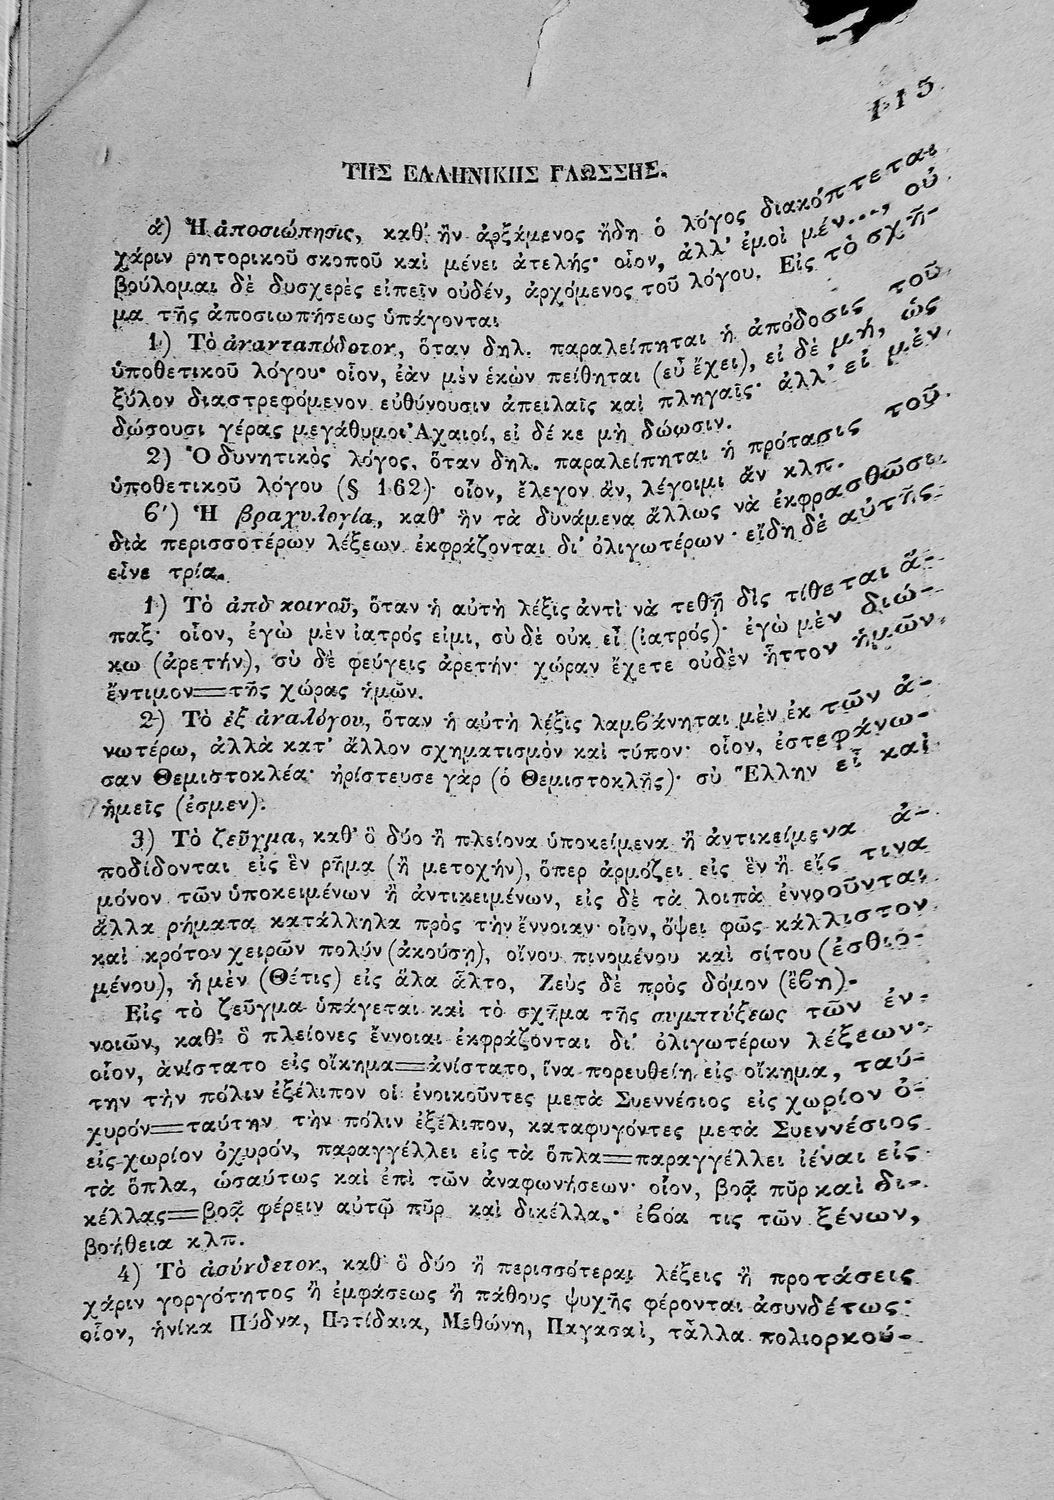 115
ΤΗΣ ΕΛΛΗΝΙΚΗΣ ΓΛΩΣΣΗΣ.
ά) Ἡ ἀποσιώπησις, καθ' ἣν ἀρξάμενος ἤδη ὁ λόγος διακόπτεται
χάριν ρητορικοῦ σκοποῦ καὶ μένει ἀτελής· οἷον, ἀλλ' ἐμοὶ μέν..., οὐ
βούλομαι δὲ δυσχερὲς εἰπεῖν οὐδέν, ἀρχόμενος τοῦ λόγου. Εἰς τὸ σχῆ-
μα τῆς ἀποσιωπήσεως ὑπάγονται
1) Τὸ ἀνανταπόδοτον, ὅταν δηλ. παραλείπηται ἡ ἀπόδοσις τοῦ
ὑποθετικοῦ λόγου· οἷον, ἐὰν μὲν ἑκὼν πείθηται (εὖ ἔχει), εἰ δὲ μή, ὡς
ξύλον διαστρεφόμενον εὐθύνουσιν ἀπειλαῖς καὶ πληγαῖς· ἀλλ' εἰ μὲν
δώσουσι γέρας μεγάθυμοι Ἀχαιοί, εἰ δέ κε μὴ δώωσιν.
2) Ὁ δυνητικὸς λόγος, ὅταν δηλ. παραλείπηται ἡ πρότασις τοῦ
ὑποθετικοῦ λόγου (§ 162)· οἷον, ἔλεγον ἄν, λέγοιμι ἄν κλπ.
ϐ') Ἡ βραχυλογία, καθ' ἣν τὰ δυνάμενα ἄλλως νὰ ἐκφρασθῶσι
διὰ περισσοτέρων λέξεων ἐκφράζονται δι' ὀλιγωτέρων· εἴδη δὲ αὐτῆς
εἶνε τρία.
1) Τὸ ἀπὸ κοινοῦ, ὅταν ἡ αὐτὴ λέξις ἀντὶ νὰ τεθῇ δὶς τίθεται ἅ-
παξ· οἷον, ἐγὼ μὲν ἰατρός εἰμι, σὺ δὲ οὐκ εἶ (ἰατρός)· ἐγὼ μὲν διώ-
κω (ἀρετήν), σὺ δὲ φεύγεις ἀρετήν· χώραν ἔχετε οὐδὲν ἧττον ἡμῶν
ἔντιμον=τῆς χώρας ἡμῶν.
2) Τὸ ἐξ ἀναλόγου, ὅταν ἡ αὐτὴ λέξις λαμϐάνηται μὲν ἐκ τῶν ἀ-
νωτέρω, ἀλλὰ κατ' ἄλλον σχηματισμὸν καὶ τύπον· οἷον, ἐστεφάνω-
σαν Θεμιστοκλέα· ἠρίστευσε γὰρ (ὁ Θεμιστοκλῆς)· σὺ Ἕλλην εἶ καὶ
ἡμεῖς (ἐσμεν).
3) Τὸ ζεῦγμα, καθ' ὃ δύο ἢ πλείονα ὑποκείμενα ἢ ἀντικείμενα ἀ-
ποδίδονται εἰς ἓν ρῆμα (ἢ μετοχήν), ὅπερ ἁρμόζει εἰς ἓν ἢ εἴς τινα
μόνον τῶν ὑποκειμένων ἢ ἀντικειμένων, εἰς δὲ τὰ λοιπὰ ἐννοοῦνται
ἄλλα ρήματα κατάλληλα πρὸς τὴν ἔννοιαν· οἷον, ὄψει φῶς κάλλιστον
καὶ κρότον χειρῶν πολύν (ἀκούσῃ), οἴνου πινομένου καὶ σίτου (ἐσθιο-
μένου), ἡ μὲν (Θέτις) εἰς ἅλα ἆλτο, Ζεὺς δὲ πρὸς δόμον (ἔϐη).
Εἰς τὸ ζεῦγμα ὑπάγεται καὶ τὸ σχῆμα τῆς συμπτύξεως τῶν ἐν-
νοιῶν, καθ' ὃ πλείονες ἔννοιαι ἐκφράζονται δι' ὀλιγωτέρων λέξεων·
οἷον, ἀνίστατο εἰς οἴκημα=ἀνίστατο, ἵνα πορευθείη εἰς οἴκημα, ταύ-
την τὴν πόλιν ἐξέλιπον οἱ ἐνοικοῦντες μετὰ Συεννέσιος εἰς χωρίον ὀ-
χυρόν=ταύτην τὴν πόλιν ἐξέλιπον, καταφυγόντες μετὰ Συεννέσιος
εἰς χωρίον ὀχυρόν, παραγγέλλει εἰς τὰ ὅπλα=παραγγέλλει ἰέναι εἰς
τὰ ὅπλα, ὡσαύτως καὶ ἐπὶ τῶν ἀναφωνήσεων· οἷον, βοᾷ πῦρ καὶ δι-
κέλλας=βοᾷ φέρειν αὐτῷ πῦρ καὶ δικέλλα,· ἐϐόα τις τῶν ξένων,
βοήθεια κλπ.
4) Τὸ ἀσύνδετον, καθ' ὃ δύο ἢ περισσότεραι λέξεις ἢ προτάσεις
χάριν γοργότητος ἢ ἐμφάσεως ἢ πάθους ψυχῆς φέρονται ἀσυνδέτως·
οἷον, ἡνίκα Πύδνα, Ποτίδαια, Μεθώνη, Παγασαί, τἆλλα πολιορκού-